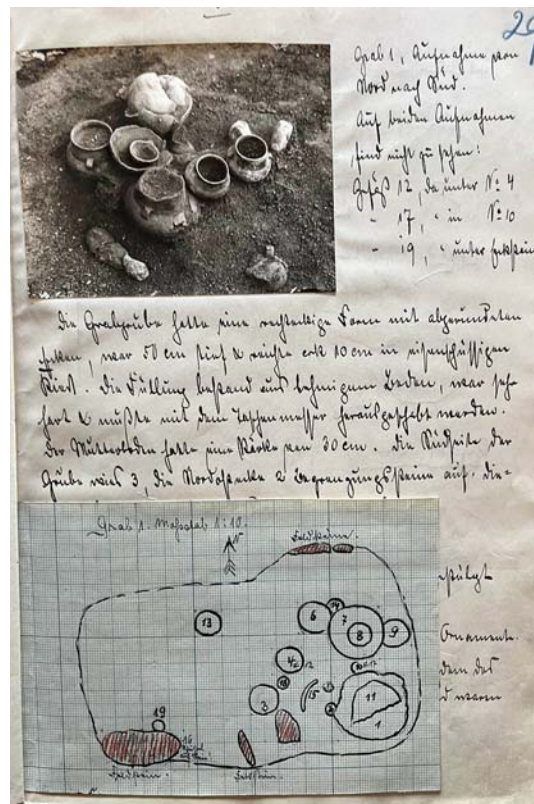 29
Grab 1, Aufnahme von
Nord nach Süd.
Auf beiden Aufnahmen
sind nicht zu sehen:
Gefäß 12, da unter No 4
" 17, " in No 10
" 19, " unter Eckstein
Die Grabgrube hatte eine rechteckige Form mit abgerundeten
Ecken, war 50 cm tief & reichte ca 10 cm in eisenschüssigen
Kies. Die Füllung bestand aus lehmigem Boden, war sehr
hart & mußte mit dem Taschenmesser herausgeschabt werden.
Der Mutterboden hatte eine Stärke von 30 cm. Die Südseite der
Grube wies 3, die Nordostecke 2 Begrenzungssteine auf. Die-
Grab 1. Massstab 1:10.
N
Feldsteine.
13
6
7
8
9
4
12
3
15
11
1
19
16
Feldstein.
Feldstein.
Ornamente.
dem das
waren